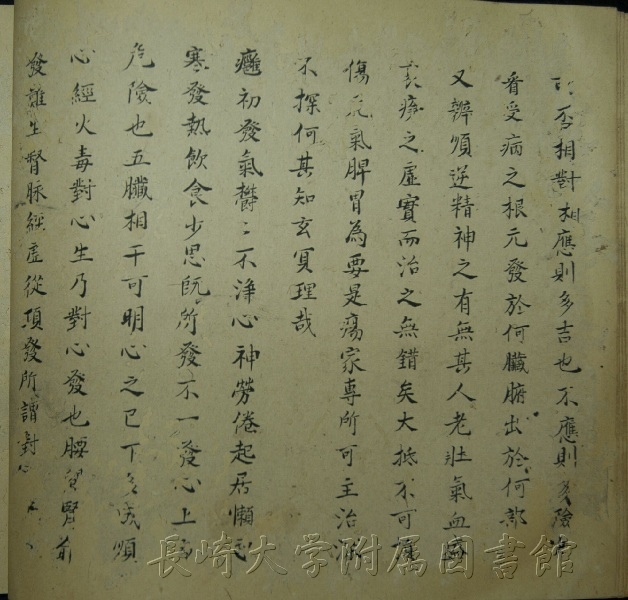 否相對相應則多吉也不應則險
看受病之根元發於何臟腑出於何部
又辨順逆精神之有無其人老壯氣血
之虛實而治之無錯矣大抵不可
傷元氣脾胃為要是瘍家專所可主治
不探何其知玄冥理哉
癰初發氣欝〻不浄心神勞倦起居懶
寒發熱飲食少思既所發不一發心上
危險也五臟相干可明心之已下
心經火毒對心生乃對心發也腰腎前
發誰生督脉經虛從項發所謂對心
長崎大学附属図書館